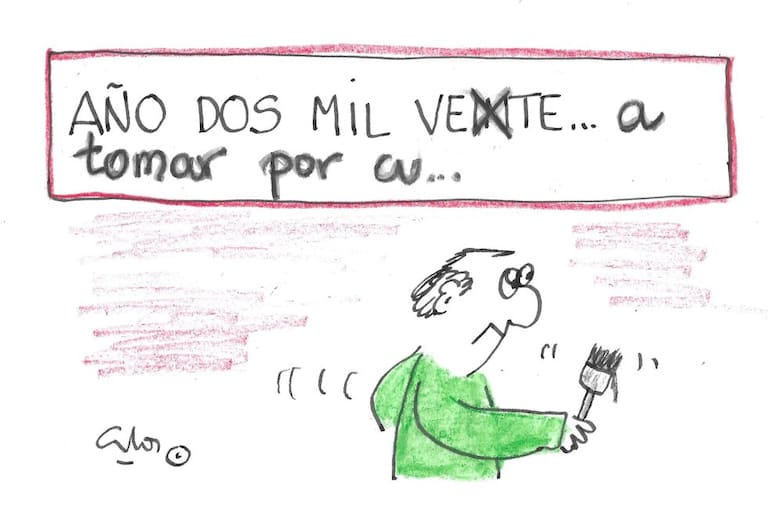 AÑO DOS MIL VEINTE... a
tomar por cu...
©